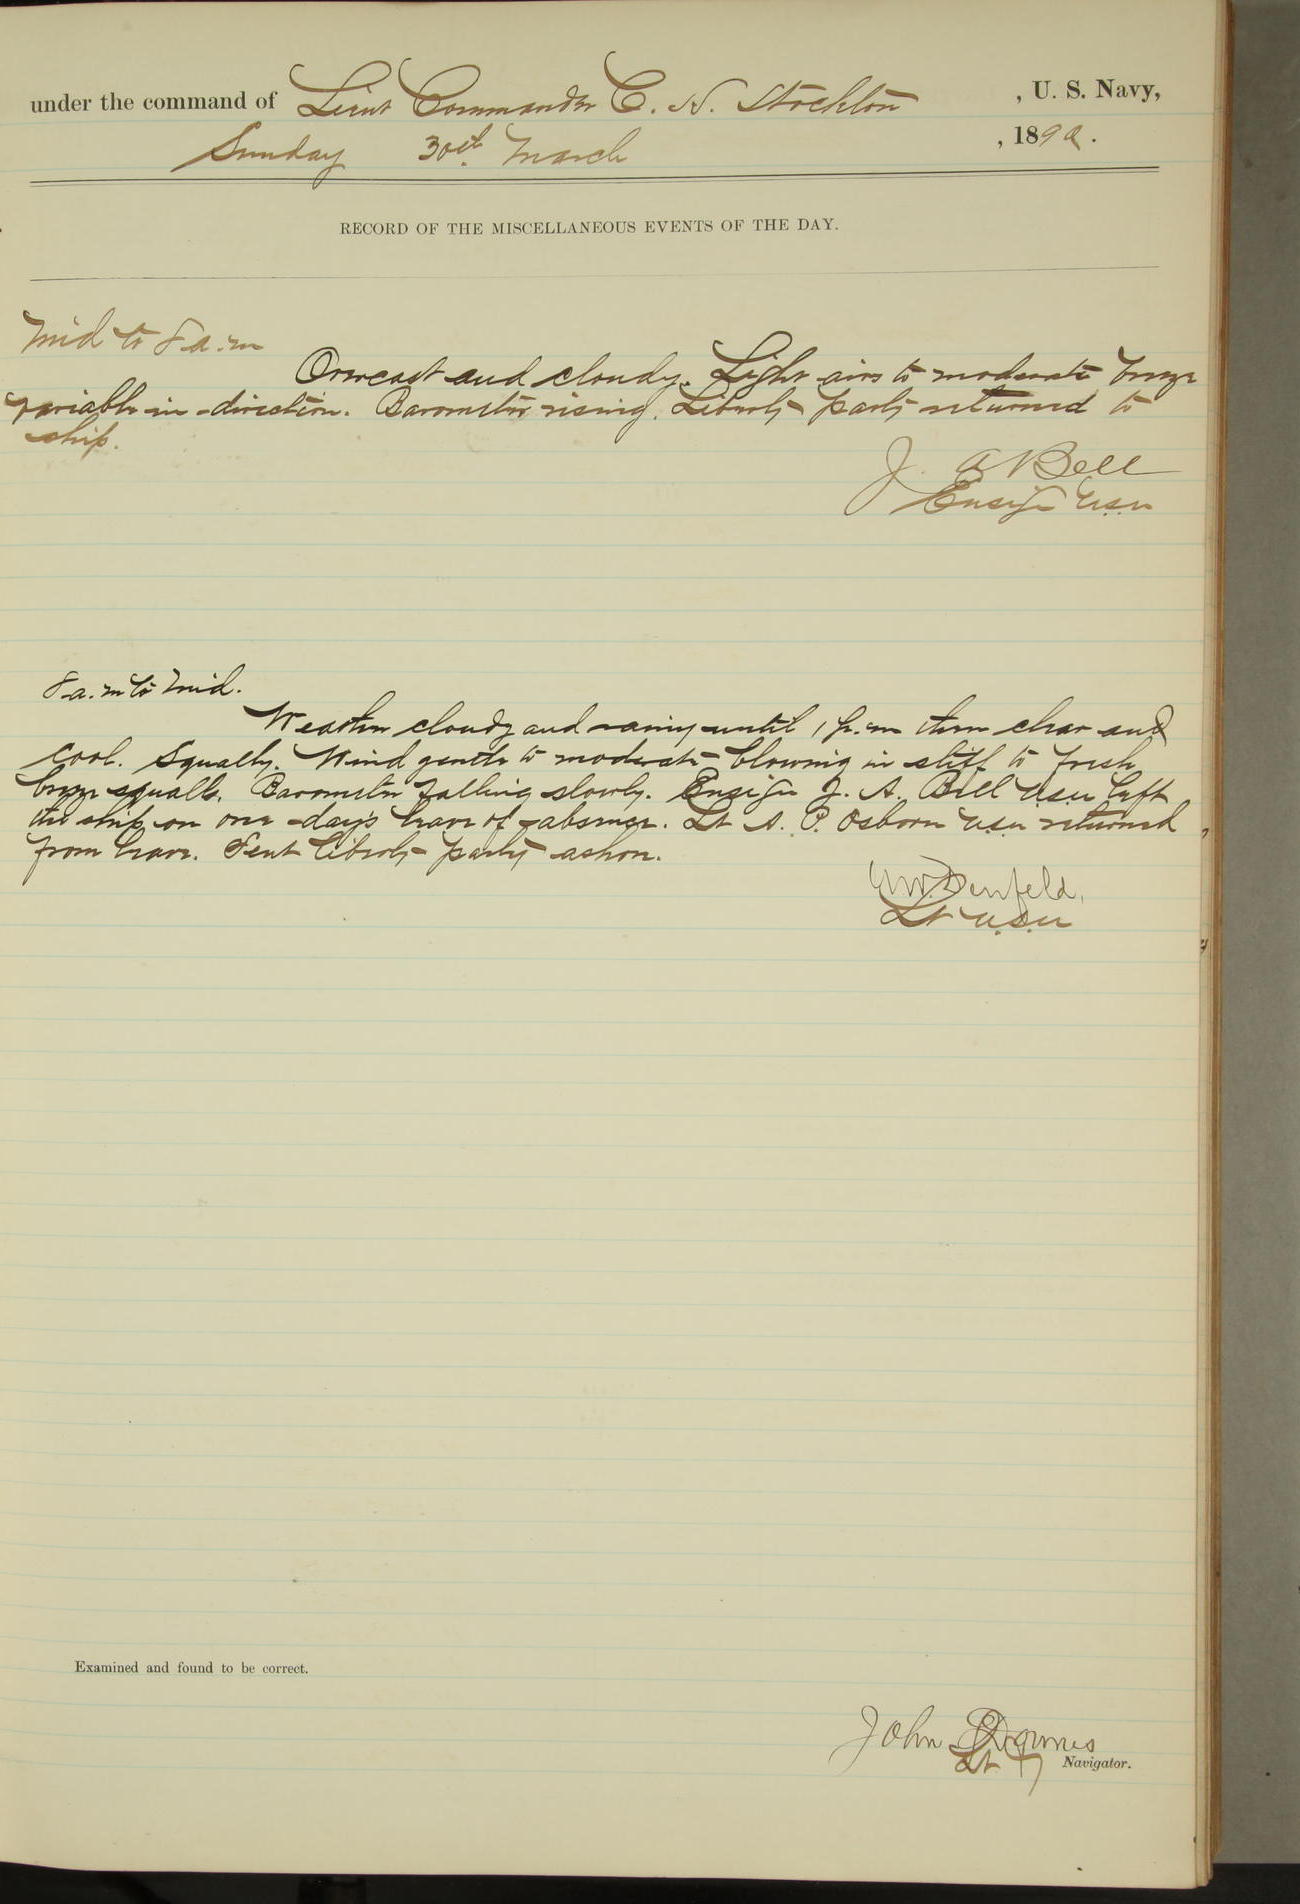 under the command of Lieut Commander C. H. Stockton , U. S. Navy,
Sunday 30th March , 1890.
RECORD OF THE MISCELLANEOUS EVENTS OF THE DAY.
Mid to 8 a.m
Overcast and cloudy. Light airs to moderate breeze
variable in direction. Barometer rising. Liberty party returned to
ship.
J. A Bell
Ensign U.S.N
8 a.m to Mid.
Weather cloudy and rainy until 1 p.m then clear and
cool. Squally. Wind gentle to moderate blowing in stiff to fresh
breeze squalls. Barometer falling slowly. Ensign J. A. Bell U.S.N left
the ship on one days leave of absence. Lt A. P. Osborn U.S.N returned
from leave. Sent liberty party ashore.
Denfeld.
Lt U.S.N
Examined and found to be correct.
John Downes
Lt Navigator.